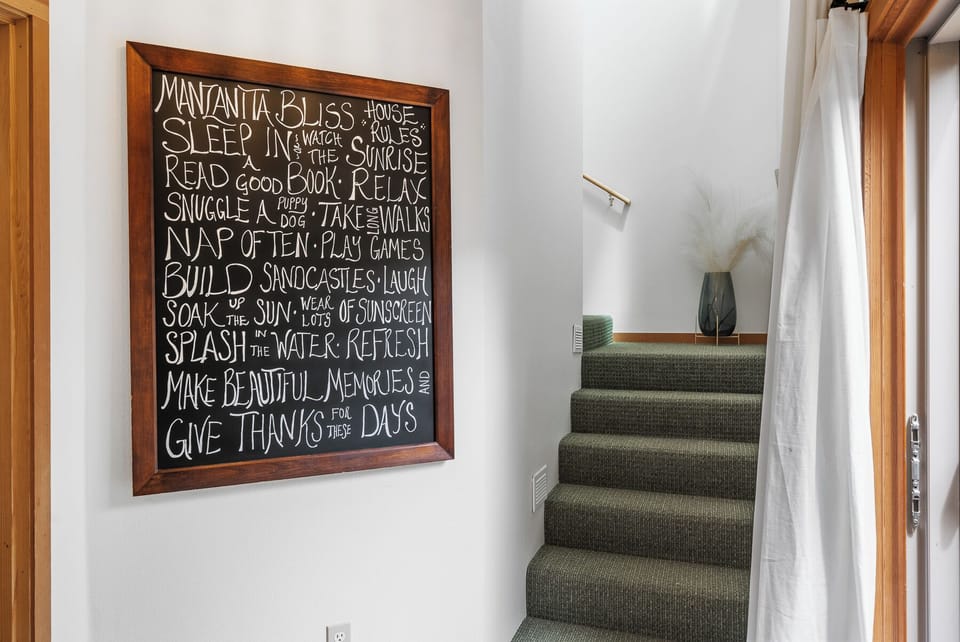 MANZANITA BLISS HOUSE RULES
SLEEP IN & WATCH THE SUNRISE
READ A GOOD BOOK · RELAX
SNUGGLE A PUPPY DOG · TAKE LONG WALKS
NAP OFTEN · PLAY GAMES
BUILD SANDCASTLES · LAUGH
SOAK UP THE SUN · WEAR LOTS OF SUNSCREEN
SPLASH IN THE WATER · REFRESH
MAKE BEAUTIFUL MEMORIES AND
GIVE THANKS FOR THESE DAYS